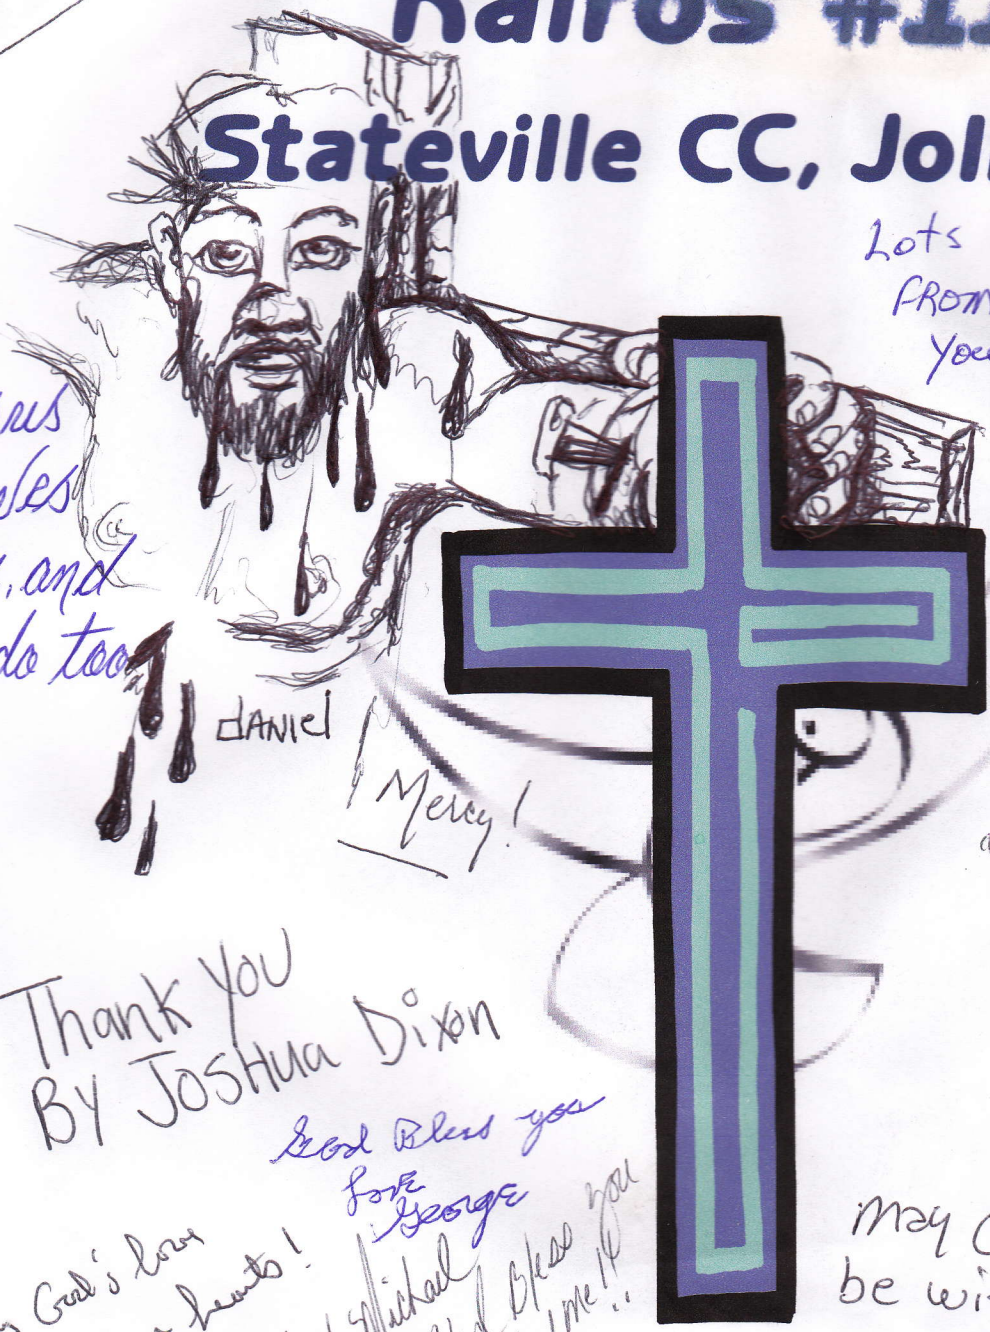 Kairos #1
Stateville CC, Joli
Lots
FROM
you
, and
do too
DANIEl
Mercy!
Thank You
By Joshua Dixon
God Bless you
Love
George
God's love
hearts!
Michael
Bless you
me!!
May
be wi